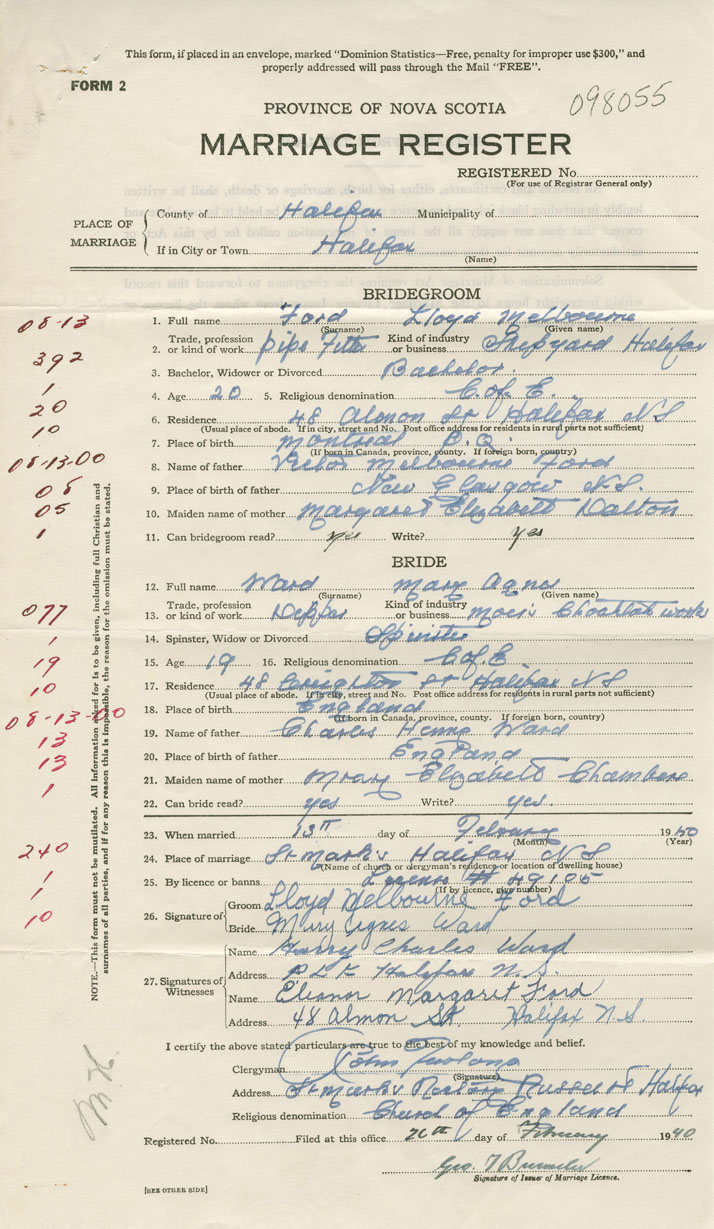 This form, if placed in an envelope, marked "Dominion Statistics—Free, penalty for improper use $300," and
properly addressed will pass through the Mail "FREE".
FORM 2
098055
PROVINCE OF NOVA SCOTIA
MARRIAGE REGISTER
REGISTERED No.
(For use of Registrar General only)
PLACE OF MARRIAGE
County of Halifax Municipality of
If in City or Town Halifax
(Name)
BRIDEGROOM
08-13
1. Full name Ford Lloyd Melbourne
(Surname) (Given name)
392
2. Trade, profession or kind of work Pipe Fitter Kind of industry or business Shipyard Halifax
3. Bachelor, Widower or Divorced Bachelor.
1
4. Age 20 5. Religious denomination C. of E.
20
6. Residence 48 Almon St Halifax NS
10
(Usual place of abode. If in city, street and No. Post office address for residents in rural parts not sufficient)
7. Place of birth Montreal P.Q.
(If born in Canada, province, county. If foreign born, country)
08-13-00
8. Name of father Victor Melbourne Ford
08
9. Place of birth of father New Glasgow N.S.
05
10. Maiden name of mother Margaret Elizabeth Dalton
1
11. Can bridegroom read? yes Write? yes
BRIDE
12. Full name Ward Mary Agnes
(Surname) (Given name)
077
13. Trade, profession or kind of work Dipper Kind of industry or business Moir's works
1
14. Spinster, Widow or Divorced Spinster
19
15. Age 19 16. Religious denomination C. of E.
10
17. Residence 48 Creighton St Halifax NS
(Usual place of abode. If in city, street and No. Post office address for residents in rural parts not sufficient)
08-13-00
18. Place of birth England
(If born in Canada, province, county. If foreign born, country)
19. Name of father Charles Henry Ward
13
13
20. Place of birth of father England
21. Maiden name of mother Mary Elizabeth Chambers
1
22. Can bride read? yes Write? yes.
23. When married 13th day of Febuary 1940
(Month) (Year)
240
24. Place of marriage St Mark's Halifax NS
(Name of church or clergyman's residence or location of dwelling house)
1
25. By licence or banns # 49105
(If by licence, give number)
1
26. Signature of
Groom Lloyd Melbourne Ford
10
Bride Mary Agnes Ward
27. Signatures of Witnesses
Name Harry Charles Ward
Address Halifax N.S.
Name Eleanor Margaret Ford
Address 48 Almon St. Halifax N.S.
I certify the above stated particulars are true to the best of my knowledge and belief.
Clergyman John Furlong
(Signature)
Address St Mark's Rectory Russel St Halifax
Religious denomination Church of England
Registered No. Filed at this office 26th day of February 1940
Signature of Issuer of Marriage Licence.
[SEE OTHER SIDE]
NOTE.—This form must not be mutilated. All Information asked for is to be given, including full Christian and
surnames of all parties, and if for any reason this is impossible, the reason for the omission must be stated.